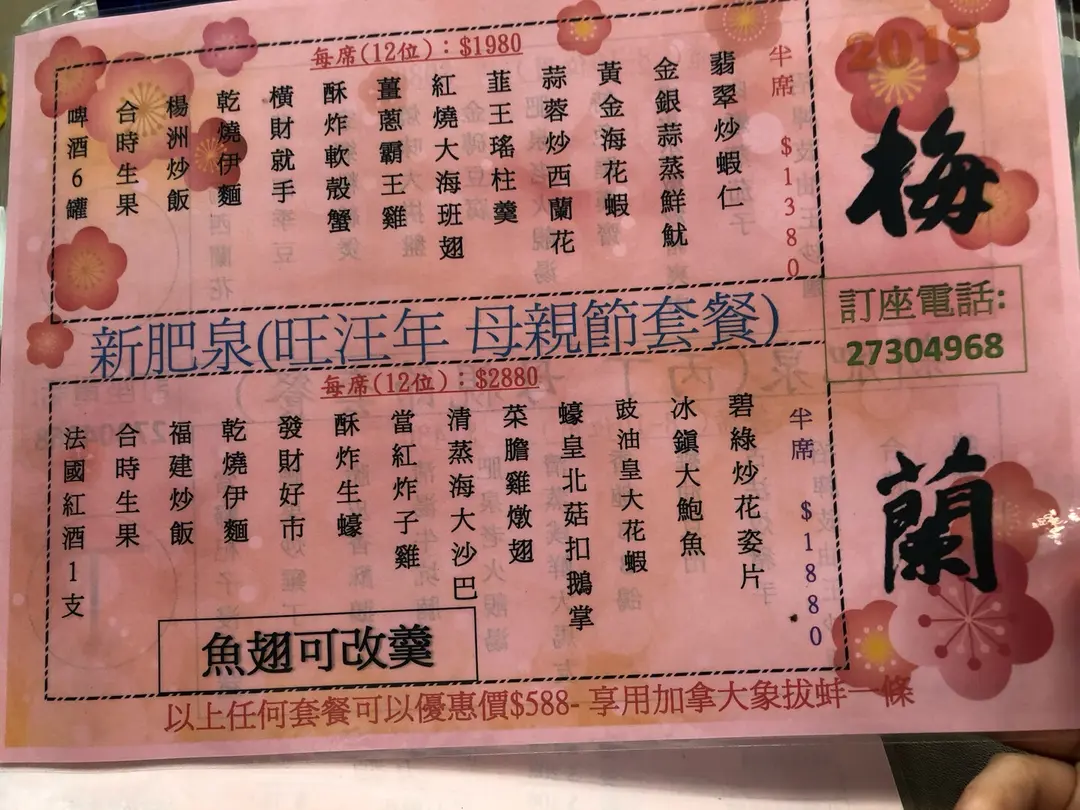 2018
梅
每席(12位)：$1980
半席 $1380
翡翠炒蝦仁
金銀蒜蒸鮮魷
黃金海花蝦
蒜蓉炒西蘭花
韮王瑤柱羹
紅燒大海班翅
薑蔥霸王雞
酥炸軟殼蟹
橫財就手
乾燒伊麵
楊洲炒飯
合時生果
啤酒6罐
新肥泉(旺汪年 母親節套餐)
訂座電話:
27304968
蘭
每席(12位)：$2880
半席 $1880
碧綠炒花姿片
冰鎭大鮑魚
豉油皇大花蝦
蠔皇北菇扣鵝掌
菜膽雞燉翅
清蒸海大沙巴
當紅炸子雞
酥炸生蠔
發財好市
乾燒伊麵
福建炒飯
合時生果
法國紅酒1支
魚翅可改羹
以上任何套餐可以優惠價$588- 享用加拿大象拔蚌一條